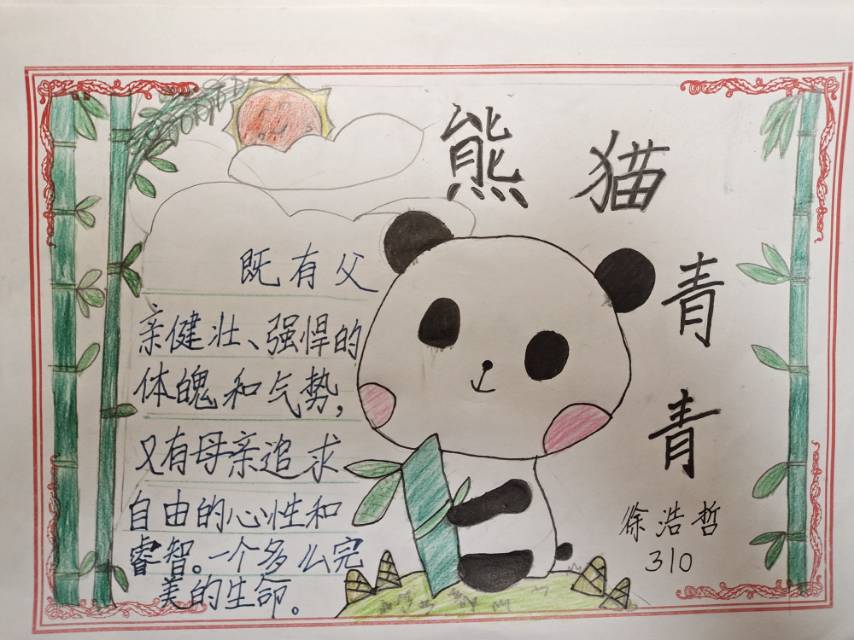 熊猫
青青
既有父
亲健壮、强悍的
体魄和气势，
又有母亲追求
自由的心性和
睿智。一个多么完
美的生命。
徐浩哲
310